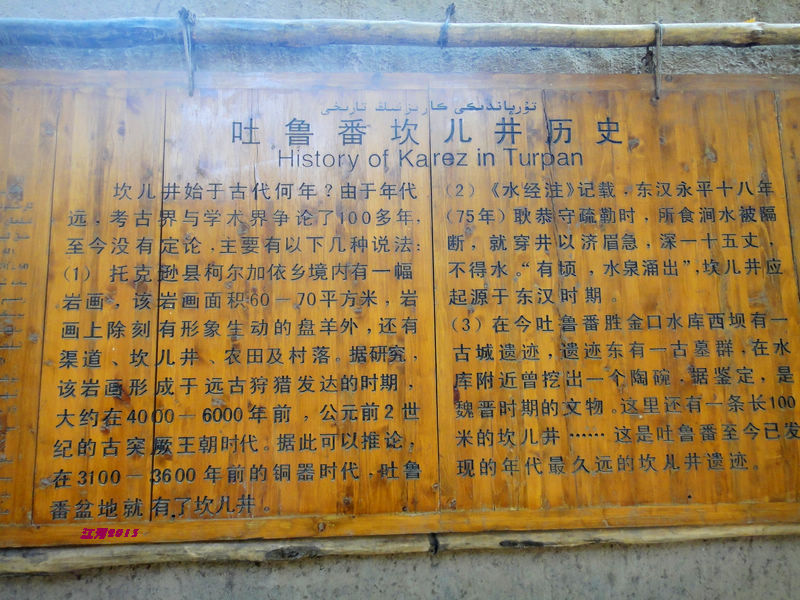 تۇرپاندىكى كارىزنىڭ تارىخى
吐鲁番坎儿井历史
History of Karez in Turpan
坎儿井始于古代何年？由于年代
远，考古界与学术界争论了100多年，
至今没有定论。主要有以下几种说法：
（1） 托克逊县柯尔加依乡境内有一幅
岩画，该岩画面积60－70平方米，岩
画上除刻有形象生动的盘羊外，还有
渠道、坎儿井、农田及村落。据研究，
该岩画形成于远古狩猎发达的时期，
大约在4000－6000年前，公元前2世
纪的古突厥王朝时代。据此可以推论，
在3100－3600年前的铜器时代，吐鲁
番盆地就有了坎儿井。
（2）《水经注》记载，东汉永平十八年
（75年）耿恭守疏勒时，所食涧水被隔
断，就穿井以济眉急，深一十五丈，
不得水。“有顷，水泉涌出”，坎儿井应
起源于东汉时期。
（3）在今吐鲁番胜金口水库西坝有一
古城遗迹，遗迹东有一古墓群，在水
库附近曾挖出一个陶碗，据鉴定，是
魏晋时期的文物。这里还有一条长100
米的坎儿井……这是吐鲁番至今已发
现的年代最久远的坎儿井遗迹。
红秀2013